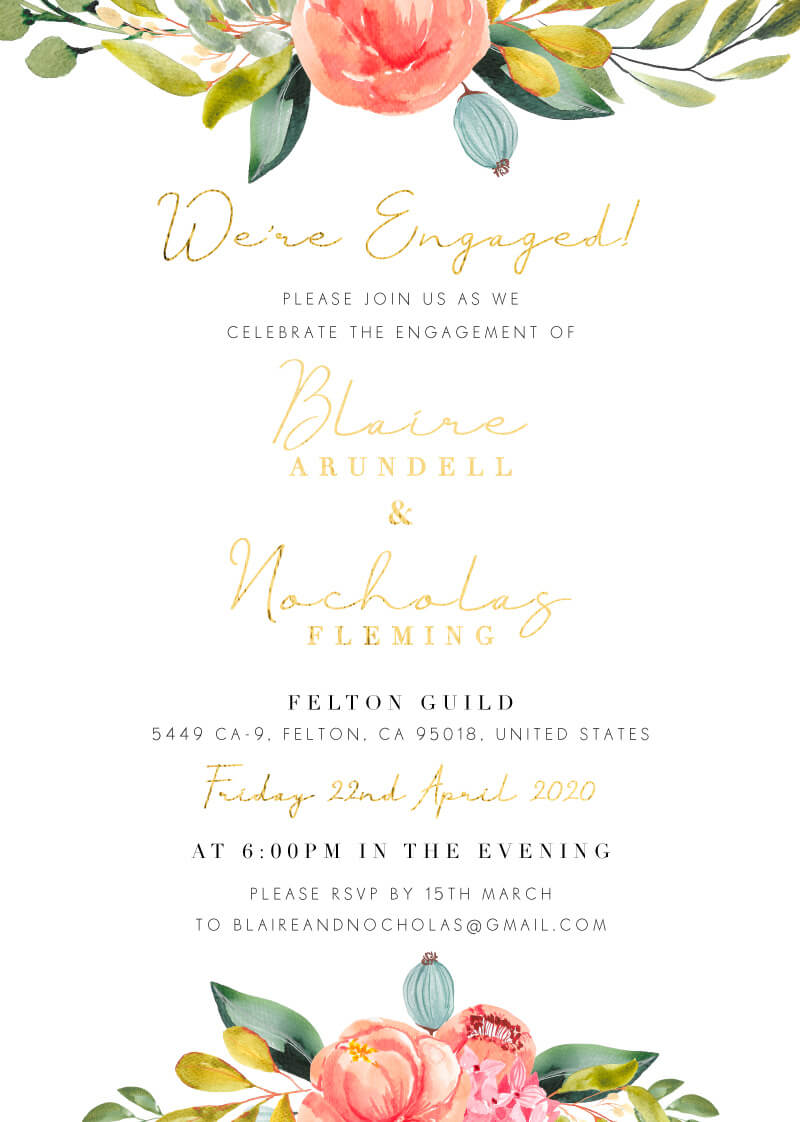 We're Engaged!
PLEASE JOIN US AS WE
CELEBRATE THE ENGAGEMENT OF
Blaire
ARUNDELL
&
Nocholas
FLEMING
FELTON GUILD
5449 CA-9, FELTON, CA 95018, UNITED STATES
Friday 22nd April 2020
AT 6:00PM IN THE EVENING
PLEASE RSVP BY 15TH MARCH
TO BLAIREANDNOCHOLAS@GMAIL.COM